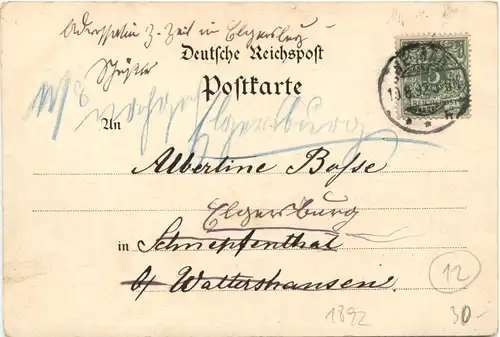 Adressatin z. Zeit in Elgersburg
Deutsche Reichspost
Postkarte
nach Elgersburg
An
Albertine Bosse
Elgersburg
in Schnepfenthal
b/ Waltershausen.
12
1892
30-